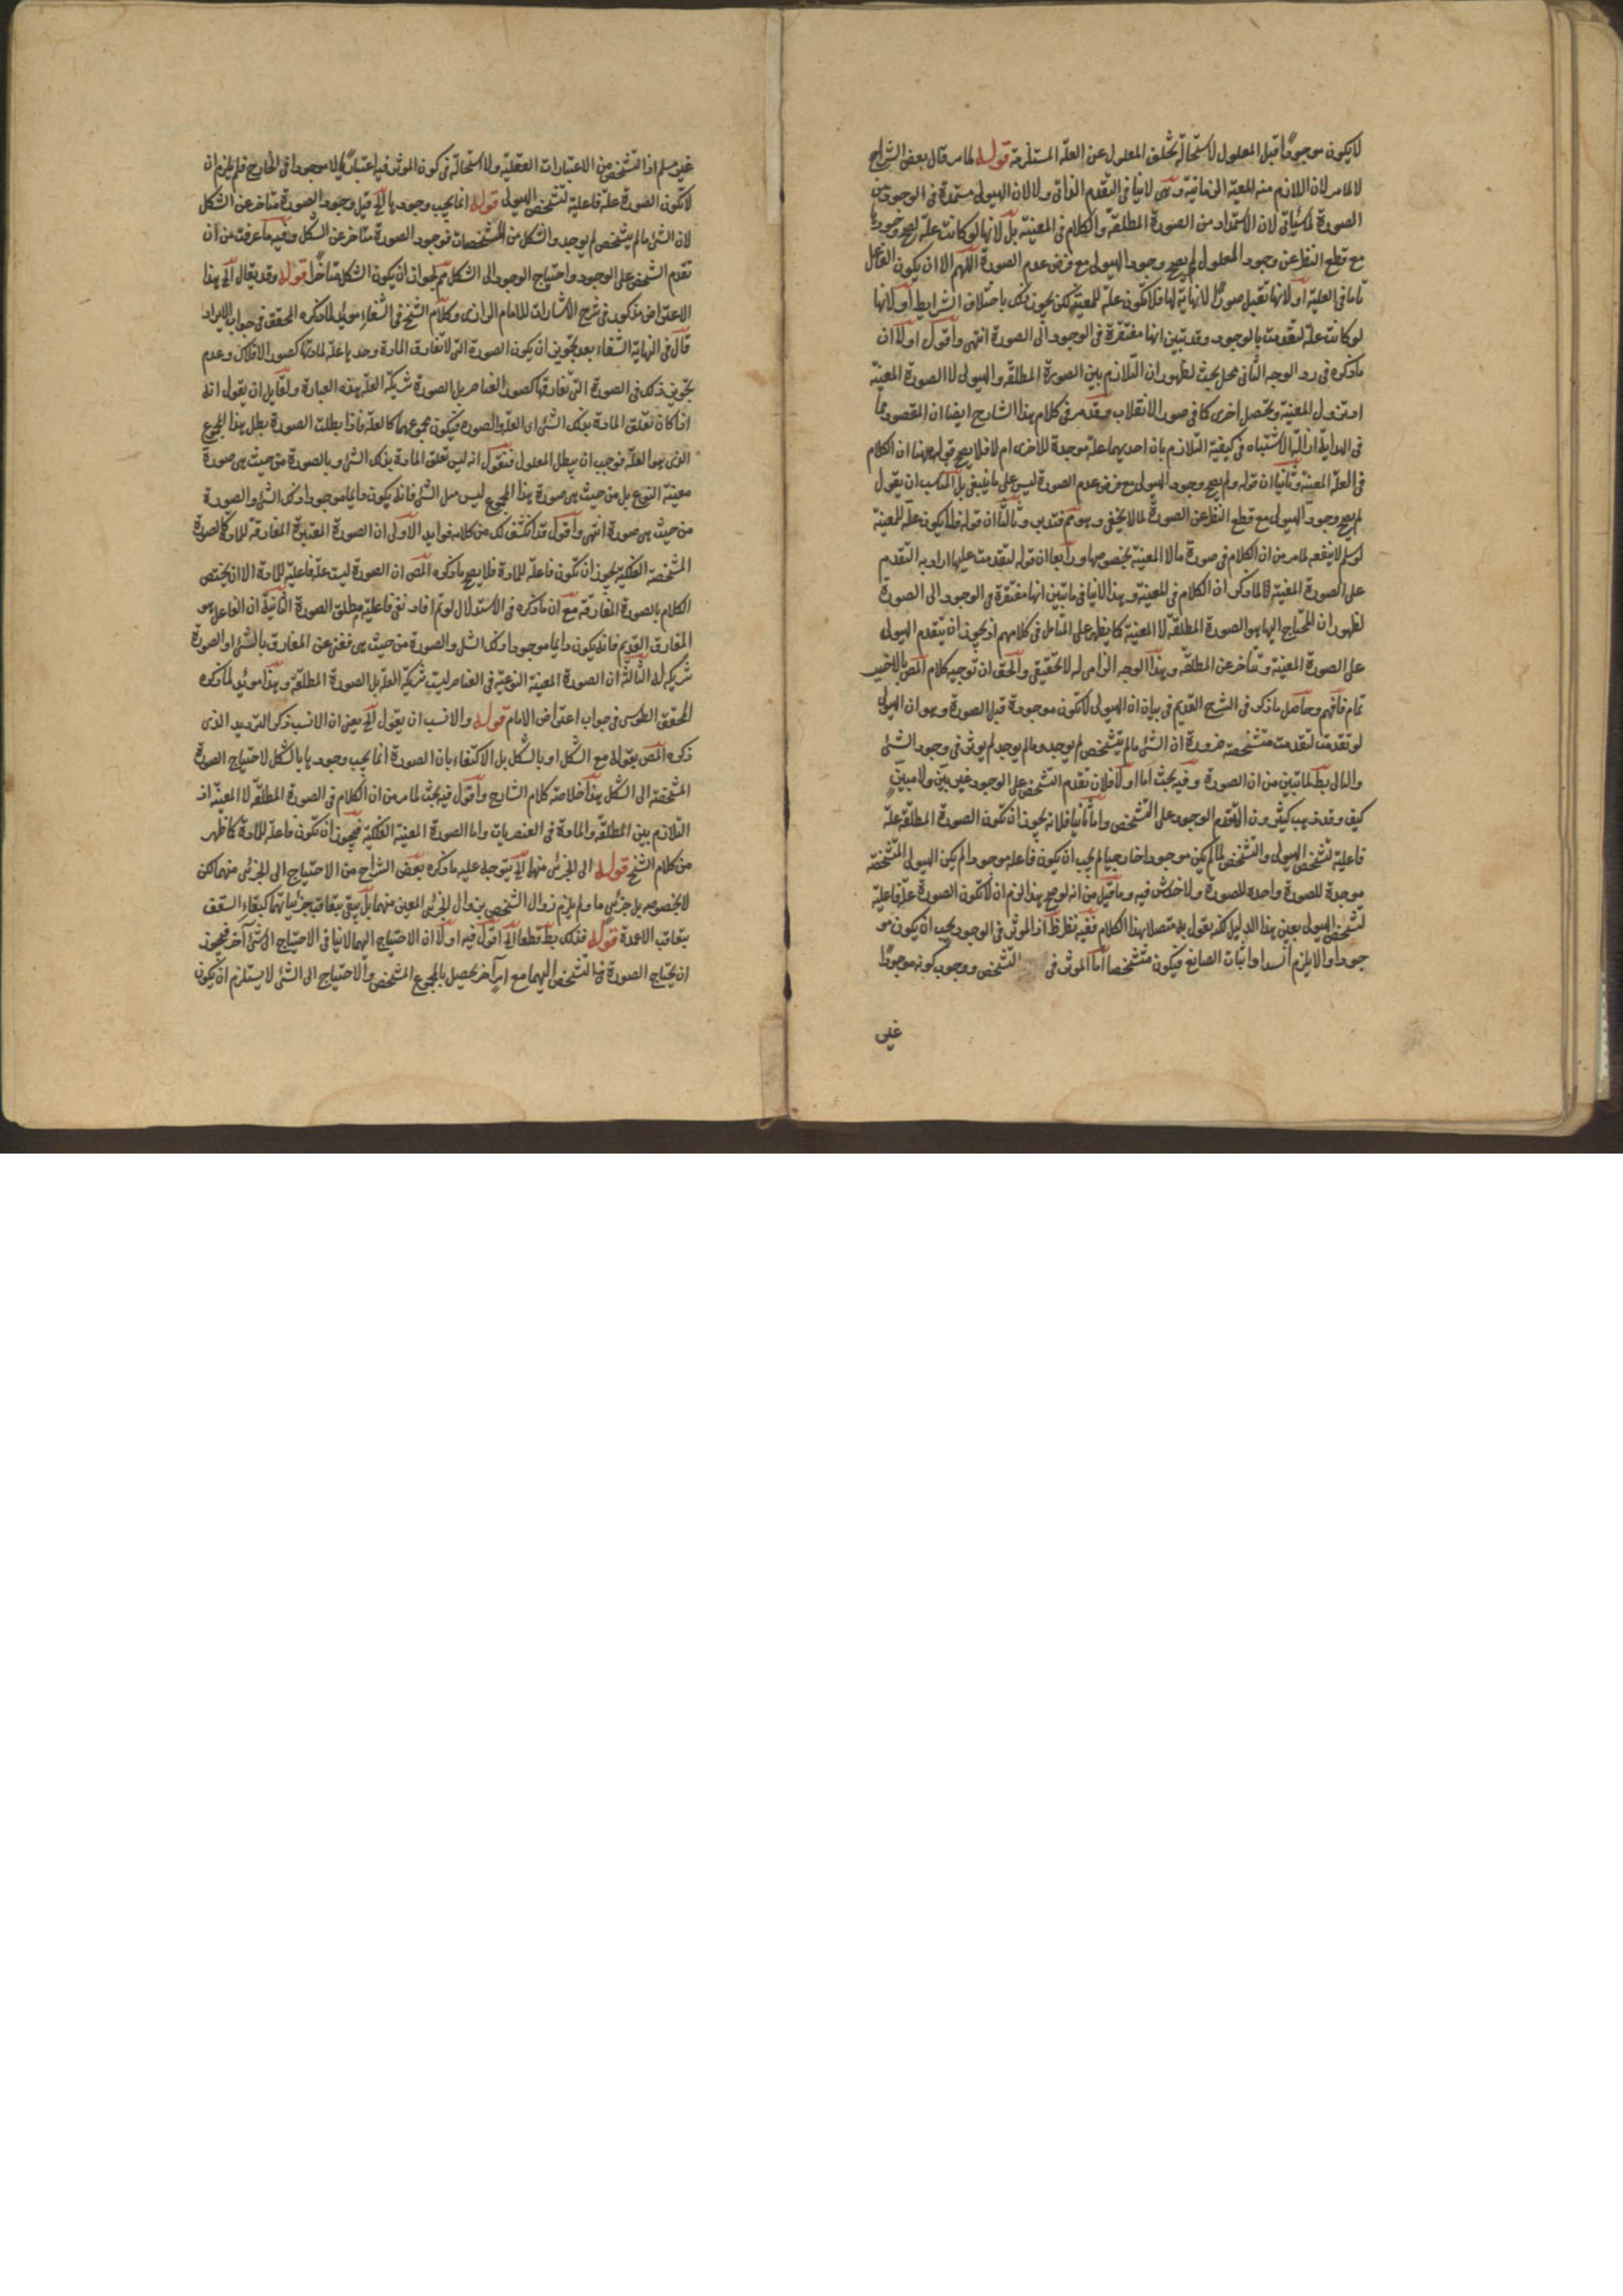 لا يكون موجودا قبل المعلول لاستحالة تخلف المعلول عن العلة المستلزمة قوله لما مر قال بعض الشراح
لا لما مر لان اللازم منه المعية الزمانية وهى لا ينافى التقدم الذاتى ولا لان الهيولى مستمدة فى الوجود من
الصورة لما سيأتى لان الاستمداد من الصورة المطلقة والكلام فى المعينة بل لانها لو كانت علة لصح وجودها
مع قطع النظر عن وجود المعلول لم يصح وجود الهيولى مع فرض عدم الصورة اللهم الا ان يكون الفاعل
تاما فى العلية او لانها تقبل صورا لا نهاية لها فلا تكون علة للمعينة لكن يجوز ذلك باختلاف الشرايط او لانها
لو كانت علة لتقدمت بالوجود وقد تبين انها مفتقرة فى الوجود الى الصورة انتهى واقول اولا ان
ما ذكره فى رد الوجه الثانى محل بحث لظهور ان التلازم بين الصورة المطلقة والهيولى لا الصورة المعينة
اذ تزول المعينة ويحصل اخرى كما فى صور الانقلاب وقد مر فى كلام هذا الشارح ايضا ان المقصود مما
فى الهداية ازالة الاشتباه فى كيفية التلازم بان احديهما علة موجدة للاخرى ام لا فلا يصح قوله ههنا ان الكلام
فى العلة المعينة وثانيا ان قوله ولم يصح وجود الهيولى مع فرض عدم الصورة ليس على ما ينبغى بل المناسب ان يقول
لم يصح وجود الهيولى مع قطع النظر عن الصورة لما لا يخفى وهو تم فتدبر وثالثا ان قوله فلا يكون علة للمعينة
لو سلم لا ينفعه لما مر من ان الكلام فى صورة ما لا المعينة بخصوصها ورابعا ان قوله لتقدمت عليها اراد به التقدم
على الصورة المعينة لما ذكر ان الكلام فى المعينة وهذا لا ينافى ما تبين انها مفتقرة فى الوجود الى الصورة
لظهور ان المحتاج اليها هو الصورة المطلقة لا المعينة كما يظهر على المتامل فى كلامهم اذ يجوز ان يتقدم الهيولى
على الصورة المعينة ويتاخر عن المطلقة وهذا الوجه الزامى له لا تحقيقى والحق ان توجيه كلام المص بالاخير
تمام فافهم وحاصل ما ذكر فى الشرح القديم فى بيان ان الهيولى لا تكون موجودة قبل الصورة وهو ان الهيولى
لو تقدمت لتقدمت متشخصة ضرورة ان الشئ ما لم يتشخص لم يوجد وما لم يوجد لم يؤثر فى وجود الشئ
والتالى بط لما تبين من ان الصورة وفيه بحث اما اولا فلان تقدم التشخص على الوجود غير بين ولا مبين
كيف وقد ذهب كثيرون الى تقدم الوجود على التشخص واما ثانيا فلانه يجوز ان تكون الصورة المطلقة علة
فاعلية لتشخص الهيولى والتشخص لما لم يكن موجودا خارجيا لم يجب ان يكون فاعله موجودا لم يكن الهيولى المتشخصة
موجدة للصورة واحدة للصورة ولا خدش فيه وما قيل من انه لو صح هذا لزم ان لا تكون الصورة علة فاعلية
لتشخص الهيولى بعين هذا الدليل لكنه يقول به متصلا بهذا الكلام ففيه نظر ظ اذ المؤثر فى الوجود يجب ان يكون مو
جودا والا يلزم انسداد اثبات الصانع فيكون متشخصا اما المؤثر فى التشخص ووجوب كونه موجودا
غير
غير مسلم اذ التشخص من الاعتبارات العقلية ولا استحالة فى كون المؤثر فيه اعتباريا لا موجودا فى الخارج فلم يلزم ان
لا تكون الصورة علة فاعلية لتشخص الهيولى قوله انما يجب وجودها الخ قيل وجود الصورة متاخر عن الشكل
لان الشئ ما لم يتشخص لم يوجد والشكل من المشخصات فوجود الصورة متاخر عن الشكل وفيه ما عرفت من ان
تقدم التشخص على الوجود واحتياج الوجود الى الشكل مم لجواز ان يكون الشكل متاخرا قوله وقد يقال الخ هذا
الاعتراض مذكور فى شرح الاشارات للامام الرازى وكلام الشيخ فى الشفاء مؤيد لما ذكره المحقق فى جواب الايراد
قال فى الهيات الشفاء بعد تجويز ان يكون الصورة التى لا تفارق المادة وحدها علة لمادتها كصور الافلاك وعدم
تجويز ذلك فى الصورة التى تفارقها كصور العناصر بل الصورة شريكة العلة بهذه العبارة ولقايل ان يقول انه
اذا كان تعلق المادة بذلك الشئ اى العلة والصورة فيكون مجموعهما كالعلة فاذا بطلت الصورة بطل هذا المجموع
الذى هو العلة فوجب ان يبطل المعلول فنقول انه ليس تعلق المادة بذلك الشئ وبالصورة من حيث هى صورة
معينة النوع بل من حيث هى صورة هذا المجموع ليس مبطل الشئ فانه يكون دايما موجودا ذلك الشئ والصورة
من حيث هى صورة انتهى واقول قد انكشف لك من كلامه فوايد الاولى ان الصورة المعينة الغير المفارقة للمادة كالصورة
المشخصة الفلكية يجوز ان تكون فاعلة للمادة فلا يصح ما ذكره المص ان الصورة ليست علة فاعلية للمادة الا ان يختص
الكلام بالصورة المفارقة مع ان ما ذكره فى الاستدلال لو تم افاد نفى فاعلية مطلق الصورة الثانية ان الفاعل هو
المفارق القديم فانه يكون دايما موجودا ذلك الشئ والصورة من حيث هى فعبر عن المفارق بالشئ والصورة
شريكة له الثالثة ان الصورة المعينة النوعية فى العناصر ليست شريكة العلة بل الصورة المطلقة وهذا مؤيد لما ذكره
المحقق الطوسى فى جواب اعتراض الامام قوله والانسب ان يقول الخ يعنى ان الانسب ذكر الترديد الذى
ذكره المص بقوله مع الشكل او بالشكل بل الاكتفاء بان الصورة انما يجب وجودها بالشكل لاحتياج الصورة
المشخصة الى الشكل هذا خلاصة كلام الشارح واقول فيه بحث لما مر من ان الكلام فى الصورة المطلقة لا المعينة اذ
التلازم بين المطلقة والمادة فى العنصريات واما الصورة المعينة الفلكية فيجوز ان تكون فاعلة للمادة كما ظهر
من كلام الشيخ قوله الى الجزئى منهما الخ يتوجه عليه ما ذكره بعض الشراح من الاحتياج الى الجزئى منهما لكن
لا بخصوصه بل جزئى ما ولم يلزم زوال التشخص بزوال الجزئى المعين منهما بل يبقى بتعاقب جزئياتهما كبقاء السقف
بتعاقب الاعمدة قوله فذلك بط قطعا الخ اقول فيه اولا ان الاحتياج اليهما لا ينافى الاحتياج الى شئ آخر فيجوز
ان يحتاج الصورة فى التشخص اليهما مع امر آخر يحصل بالمجموع التشخص والاحتياج الى الشئ لا يستلزم ان يكون